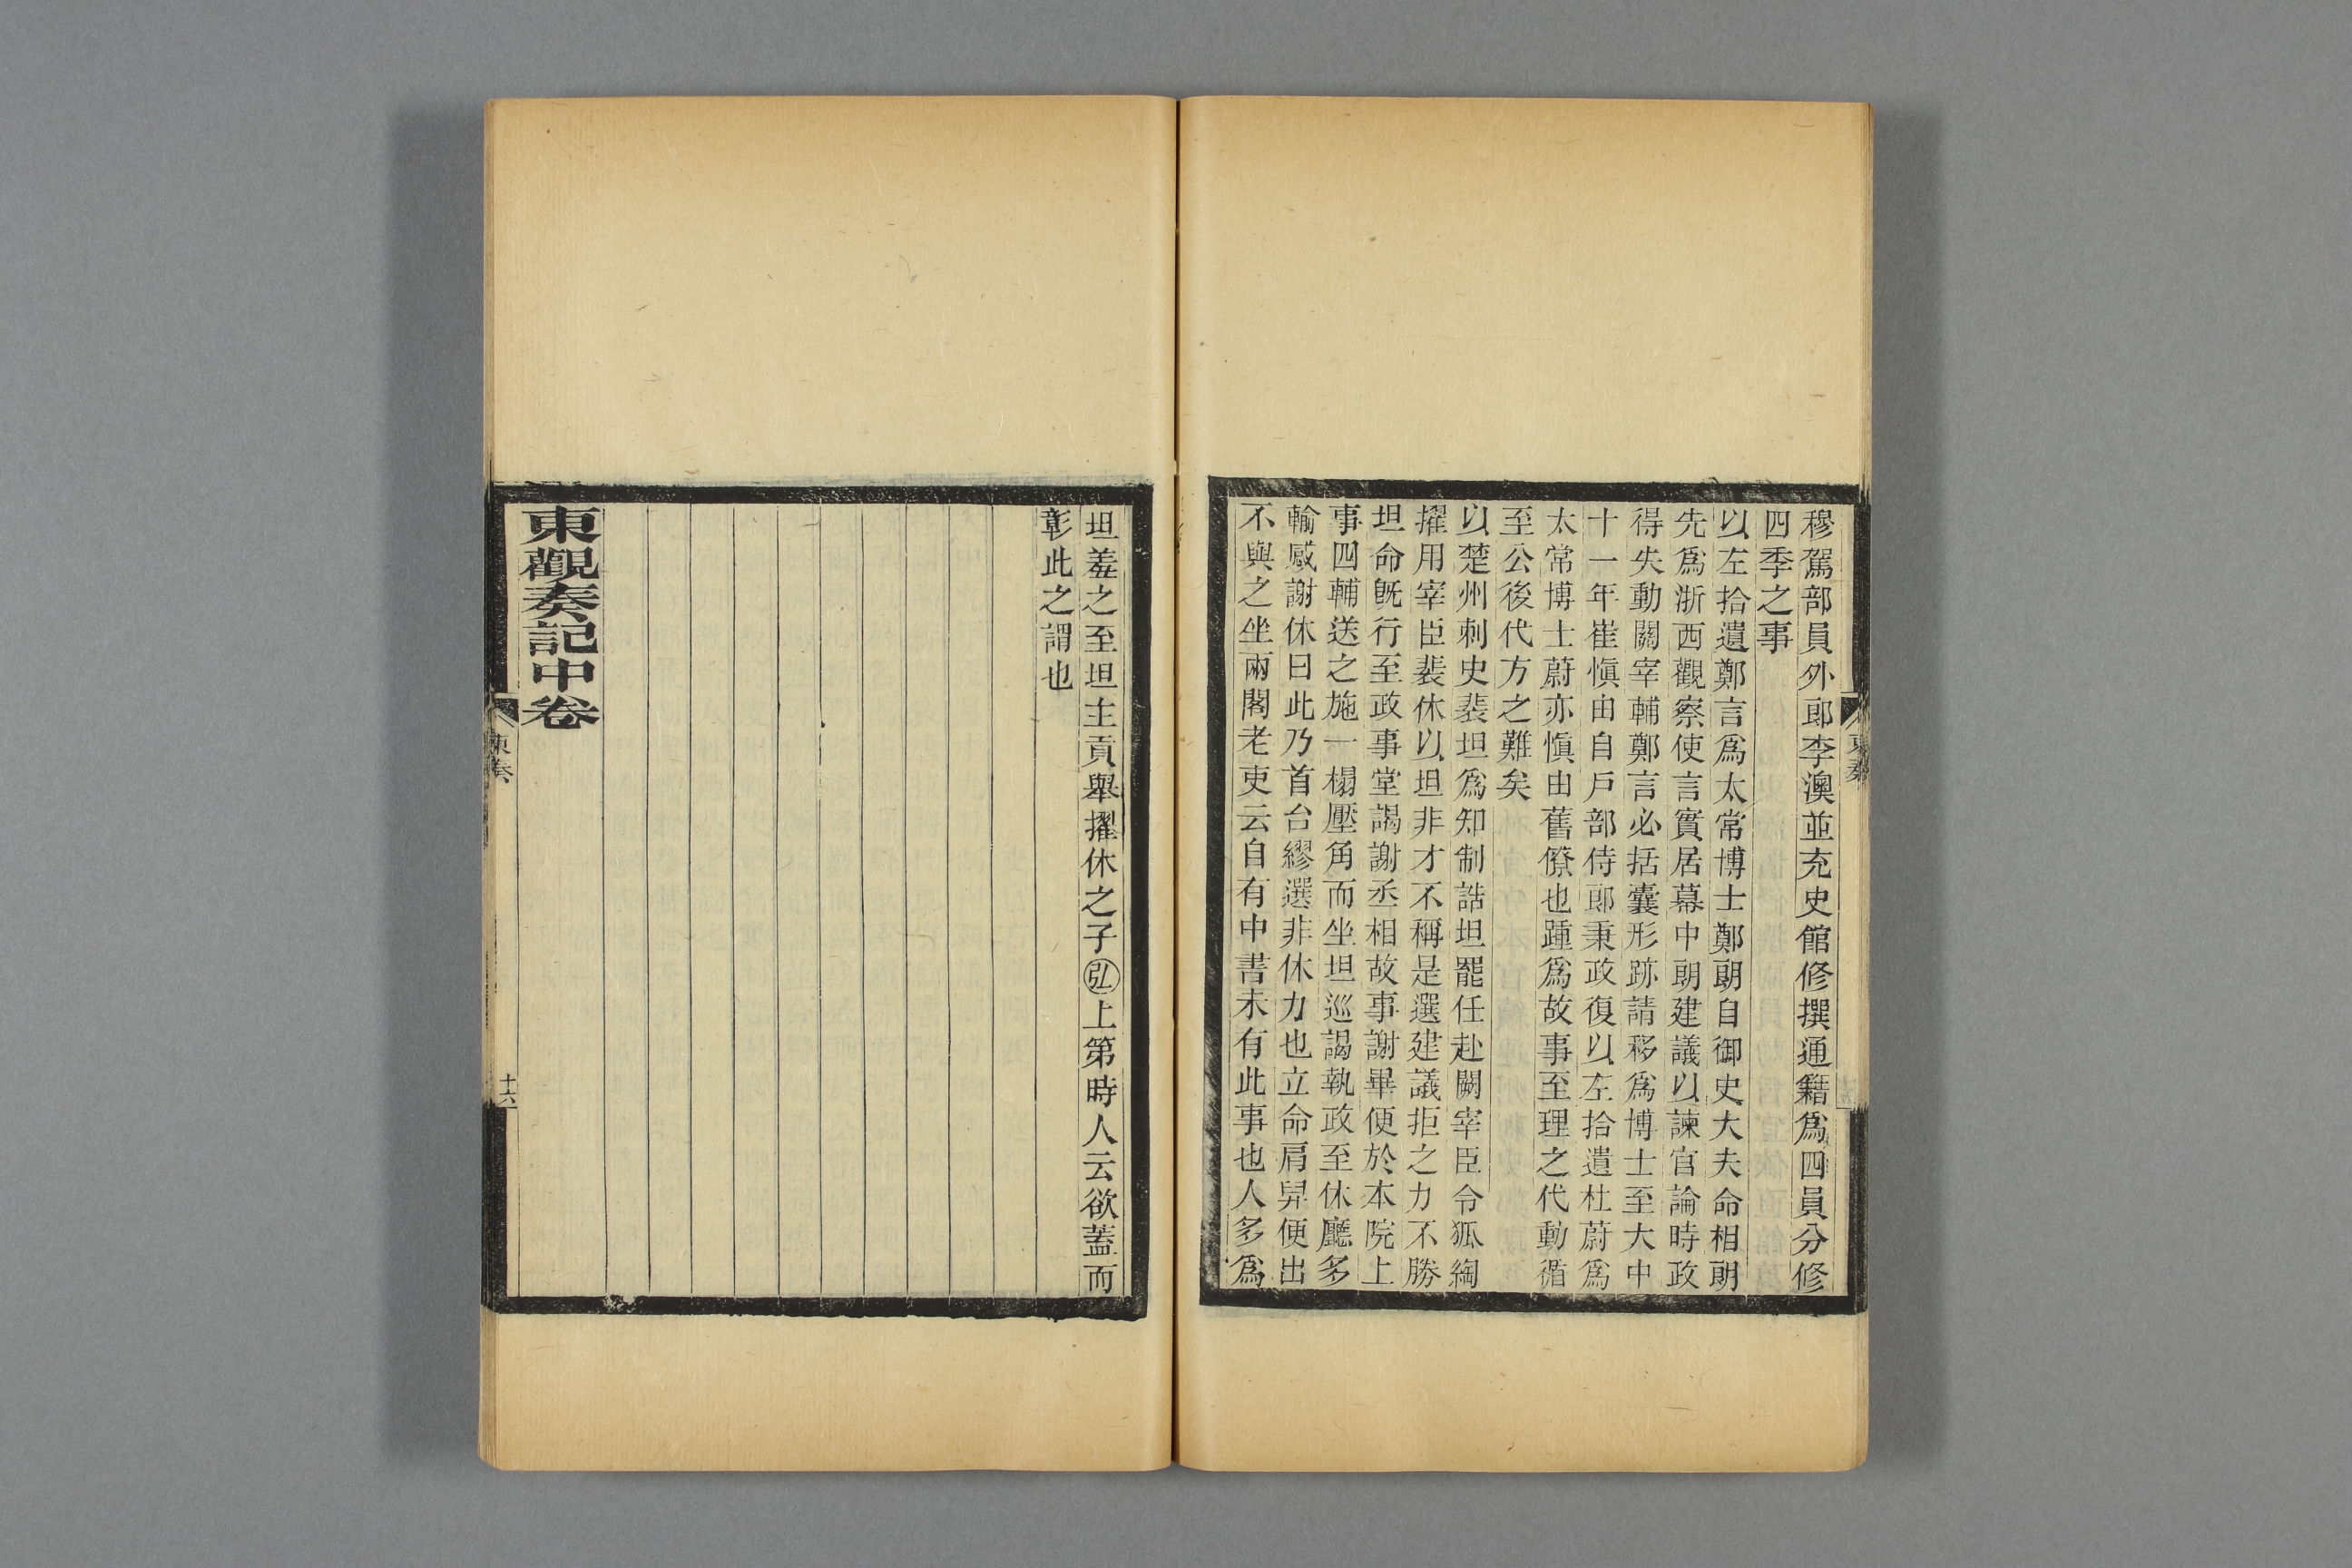 穆駕部員外郎李澳並充史館修撰通籍爲四員分修
四季之事
以左拾遺鄭言爲太常博士鄭朗自御史大夫命相朗
先爲浙西觀察使言實居幕中朗建議以諫官論時政
得失動關宰輔鄭言必括囊形跡請移爲博士至大中
十一年崔愼由自戶部侍郎秉政復以左拾遺杜蔚爲
太常博士蔚亦愼由舊僚也踵爲故事至理之代動循
至公後代方之難矣
以楚州刺史裴坦爲知制誥坦罷任赴闕宰臣令狐綯
擢用宰臣裴休以坦非才不稱是選建議拒之力不勝
坦命旣行至政事堂謁謝丞相故事謝畢便於本院上
事四輔送之施一榻壓角而坐坦巡謁執政至休廳多
輸感謝休曰此乃首台繆選非休力也立命肩舁便出
不與之坐兩閣老吏云自有中書未有此事也人多爲
坦羞之至坦主貢舉擢休之子弘上第時人云欲蓋而
彰此之謂也
東觀奏記中卷
東奏
十六